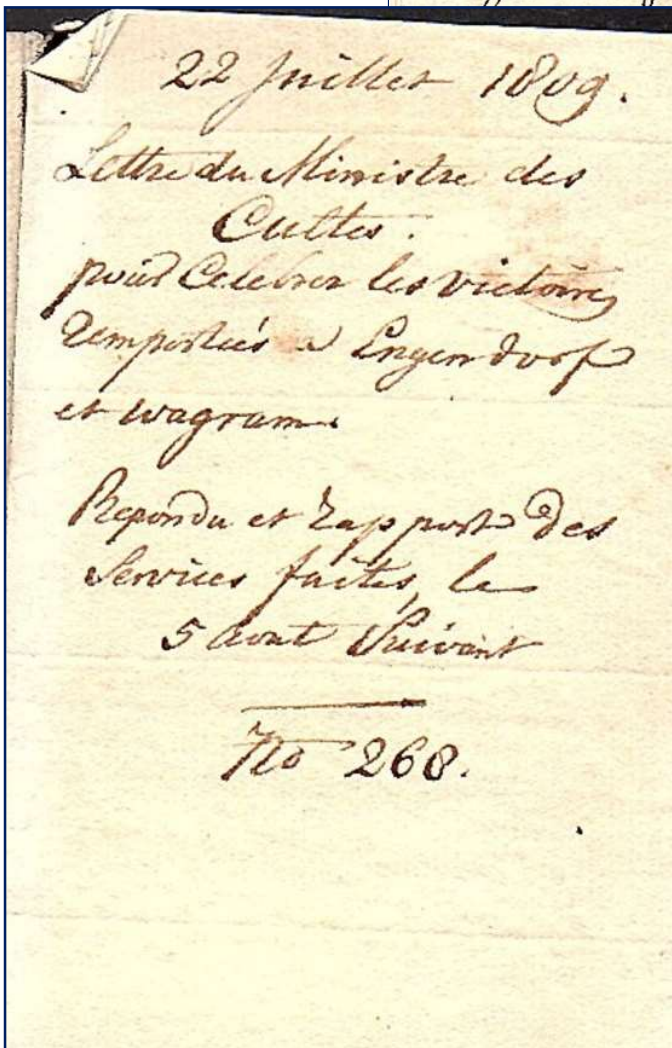 22 Juillet 1809.
Lettre du Ministre des
Cultes.
pour Celebrer les victoires
Remportées a Engendorf
et wagram.
Repondu et Rapport des
Services faites, le
5 aout Suivant
No 268.